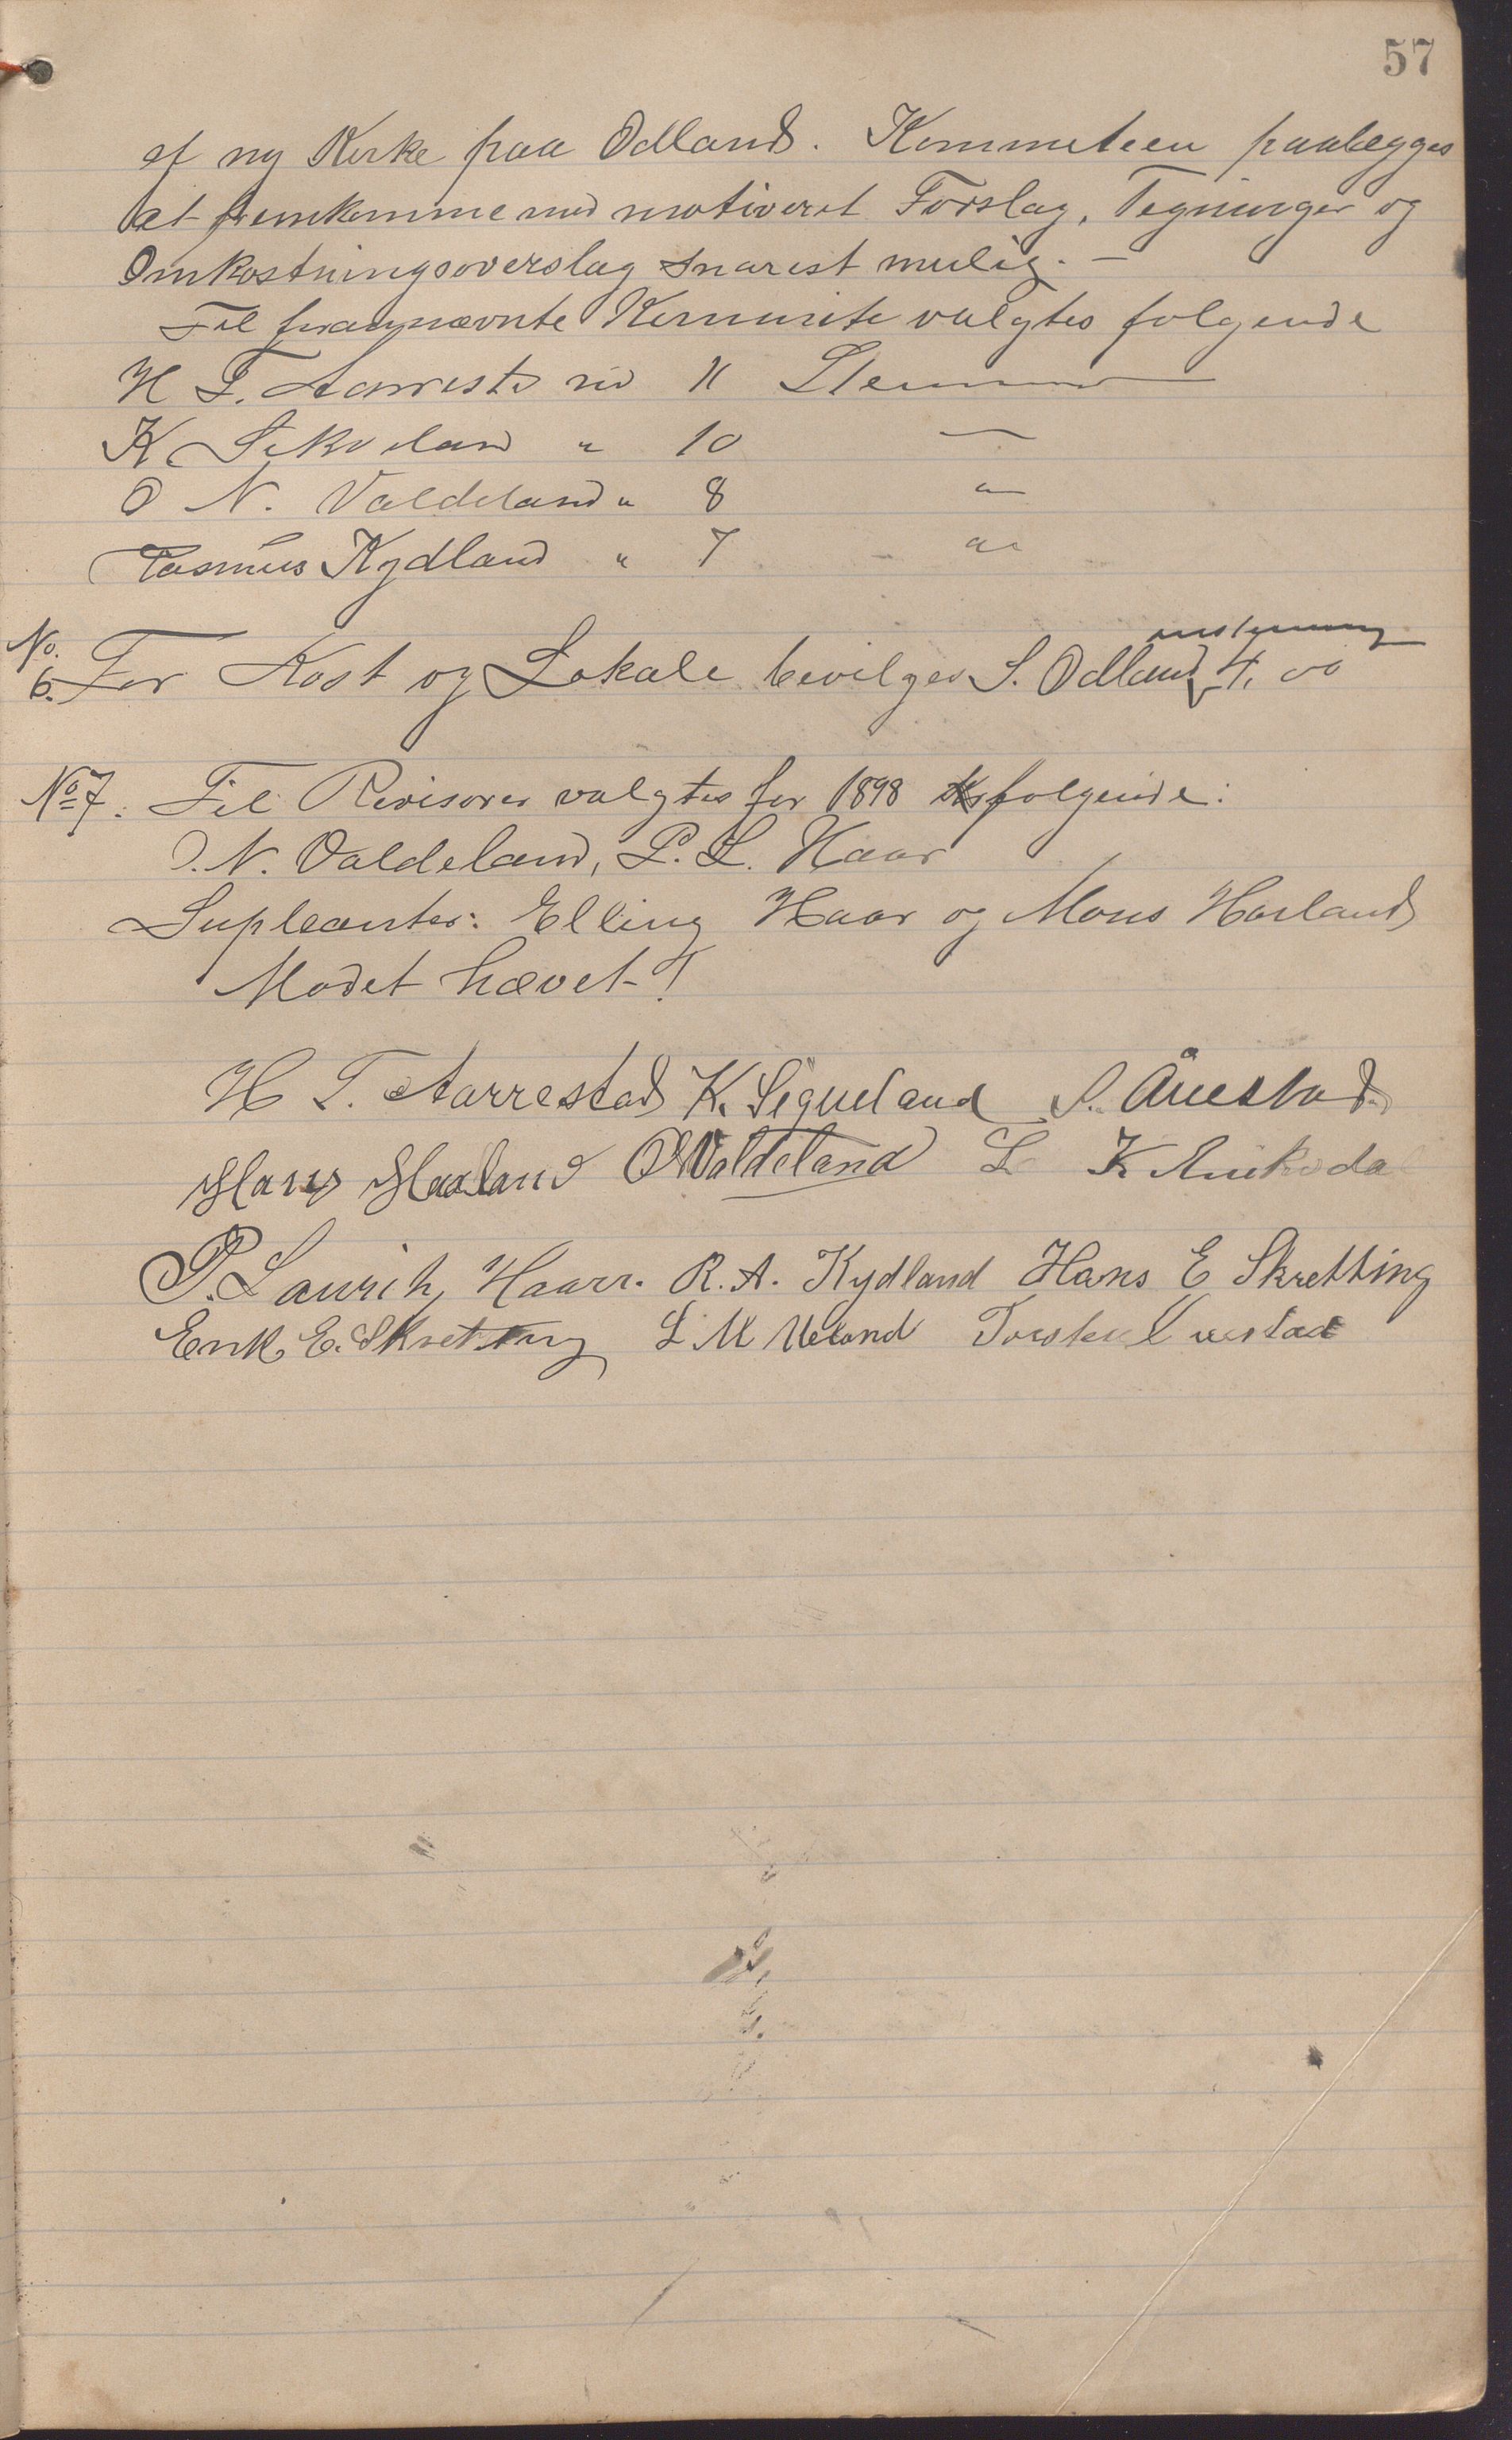 57
af ny Kirke paa Odland. Kommiteen paalægges
at fremkomme med motiveret Forslag, Tegninger og
Omkostningsoverslag snarest mulig. —
Til frangnævnte Kommite valgtes følgende
H T. Aarrests md 11 Stemmer
K Sikveland " 10 —
O N. Valdeland " 8 "
Rasmus Kydland " 7 "
No.
6. For Kost og Lokale bevilges S. Odland 4,00
No 7. Til Revisorer valgtes for 1898 følgende:
O. N. Valdeland, P. L. Haar
Supleanter: Elling Haar og Mons Harland
Mødet hævet!
H T. Aarrestad K. Sigveland S. Ånestad
Hans Haaland O N Valdeland L K
P. Laurits Haarr. R. A. Kydland Hans E Skretting
Erik E. Skretting L M Ueland